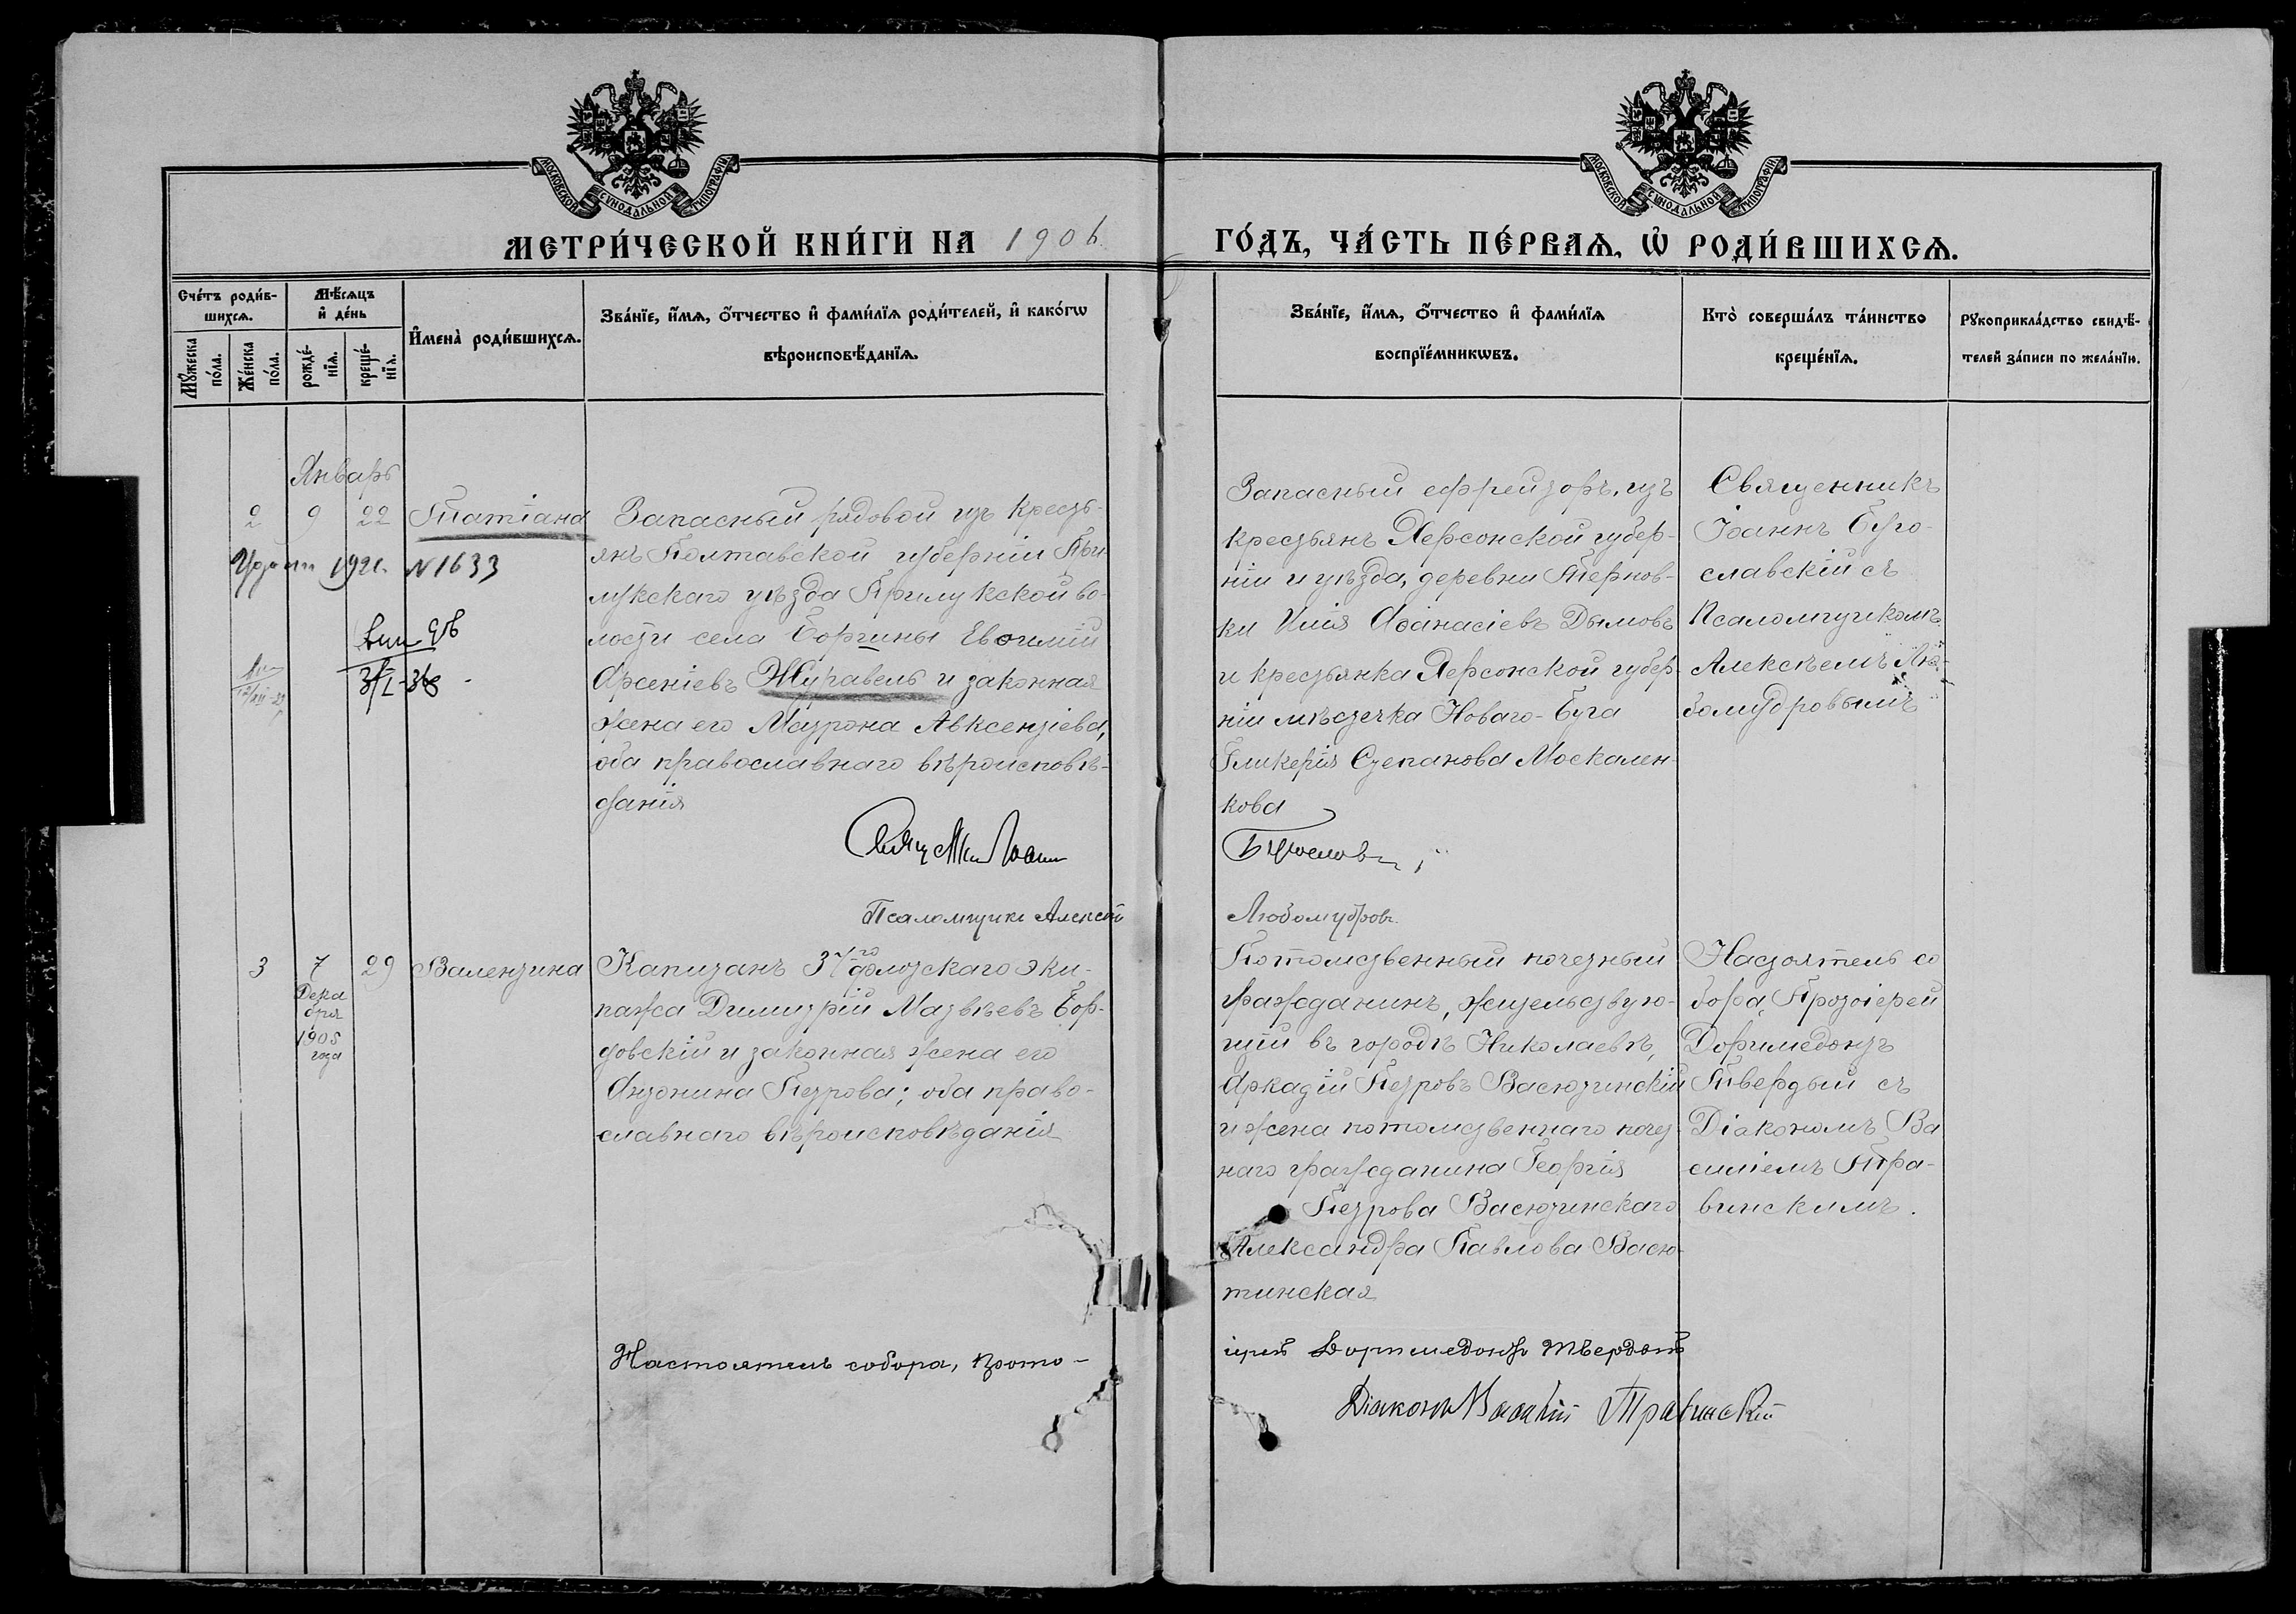 МОСКОВСКОЙ СѴНОДАЛЬНОЙ ТИПОГРАФІИ
МОСКОВСКОЙ СѴНОДАЛЬНОЙ ТИПОГРАФІИ
МЕТРИ́ЧЕСКОЙ КНИ́ГИ НА 1906
ГО́ДЪ, ЧА́СТЬ ПЕ́РВАѦ, Ѡ҆ РОДИ́ВШИХСѦ.
Сче́тъ роди́в-
шихсѧ.
Мꙋ́жеска по́ла.
Же́нска по́ла.
Мѣ́сѧцъ
и҆ де́нь
рожде́-
нїѧ.
креще́-
нїѧ.
И҆мена̀ роди́вшихсѧ.
Зва́нїе, и҆́мѧ, о҆́тчество и҆ фами́лїѧ роди́телей, и҆ како́гѡ
вѣроисповѣ́данїѧ.
Зва́нїе, и҆́мѧ, о҆́тчество и҆ фами́лїѧ
воспрїе́мникѡвъ.
Кто̀ соверша́лъ та́инство
креще́нїѧ.
Рꙋкоприкла́дство свидѣ́-
телей за́писи по жела́нїю.
Январь
2 9 22 Татіана
1921. N 1633
Запасный рядовой изъ кресть-
янъ Полтавской губерніи При-
лукскаго уѣзда Прилукской во-
лости села Боршны Евѳимій
Арсеніевъ Журавель и законная
жена его Матрона Авксентіева,
оба православнаго вѣроисповѣ-
данія
Запасный ефрейторъ, изъ
крестьянъ Херсонской губер-
ніи и уѣзда, деревни Тернов-
ки Илія Аѳанасіевъ Дымовъ
и крестьянка Херсонской губер-
ніи мѣстечка Новаго-Буга
Гликерія Степанова Москален-
кова
Священникъ
Іоаннъ Буго-
славскій съ
Псаломщикомъ
Алексѣемъ Лю-
бомудровымъ
Псаломщикъ Алексей
Любомудровъ
3 7 29 Валентина
Дека
бря
1905
года
Капитанъ 37го флотскаго эки-
пажа Димитрій Матвѣевъ Бор-
довскій и законная жена его
Антонина Петрова; оба право-
славнаго вѣроисповѣданія
Потомственный почетный
гражданинъ, жительствую-
щій въ городѣ Николаевѣ,
Аркадій Петровъ Васютинскій
и жена потомственнаго почет-
наго гражданина Георгія
Петрова Васютинскаго
Александра Павлова Васю-
тинская
Настоятель со
бора, Протоіерей
Доримедонтъ
Твердый съ
Діакономъ Ва
силіемъ Тра-
винскимъ.
Настоятель собора, прото-
іерей Доримедонтъ Твердый
Діаконъ Василій Травинскій